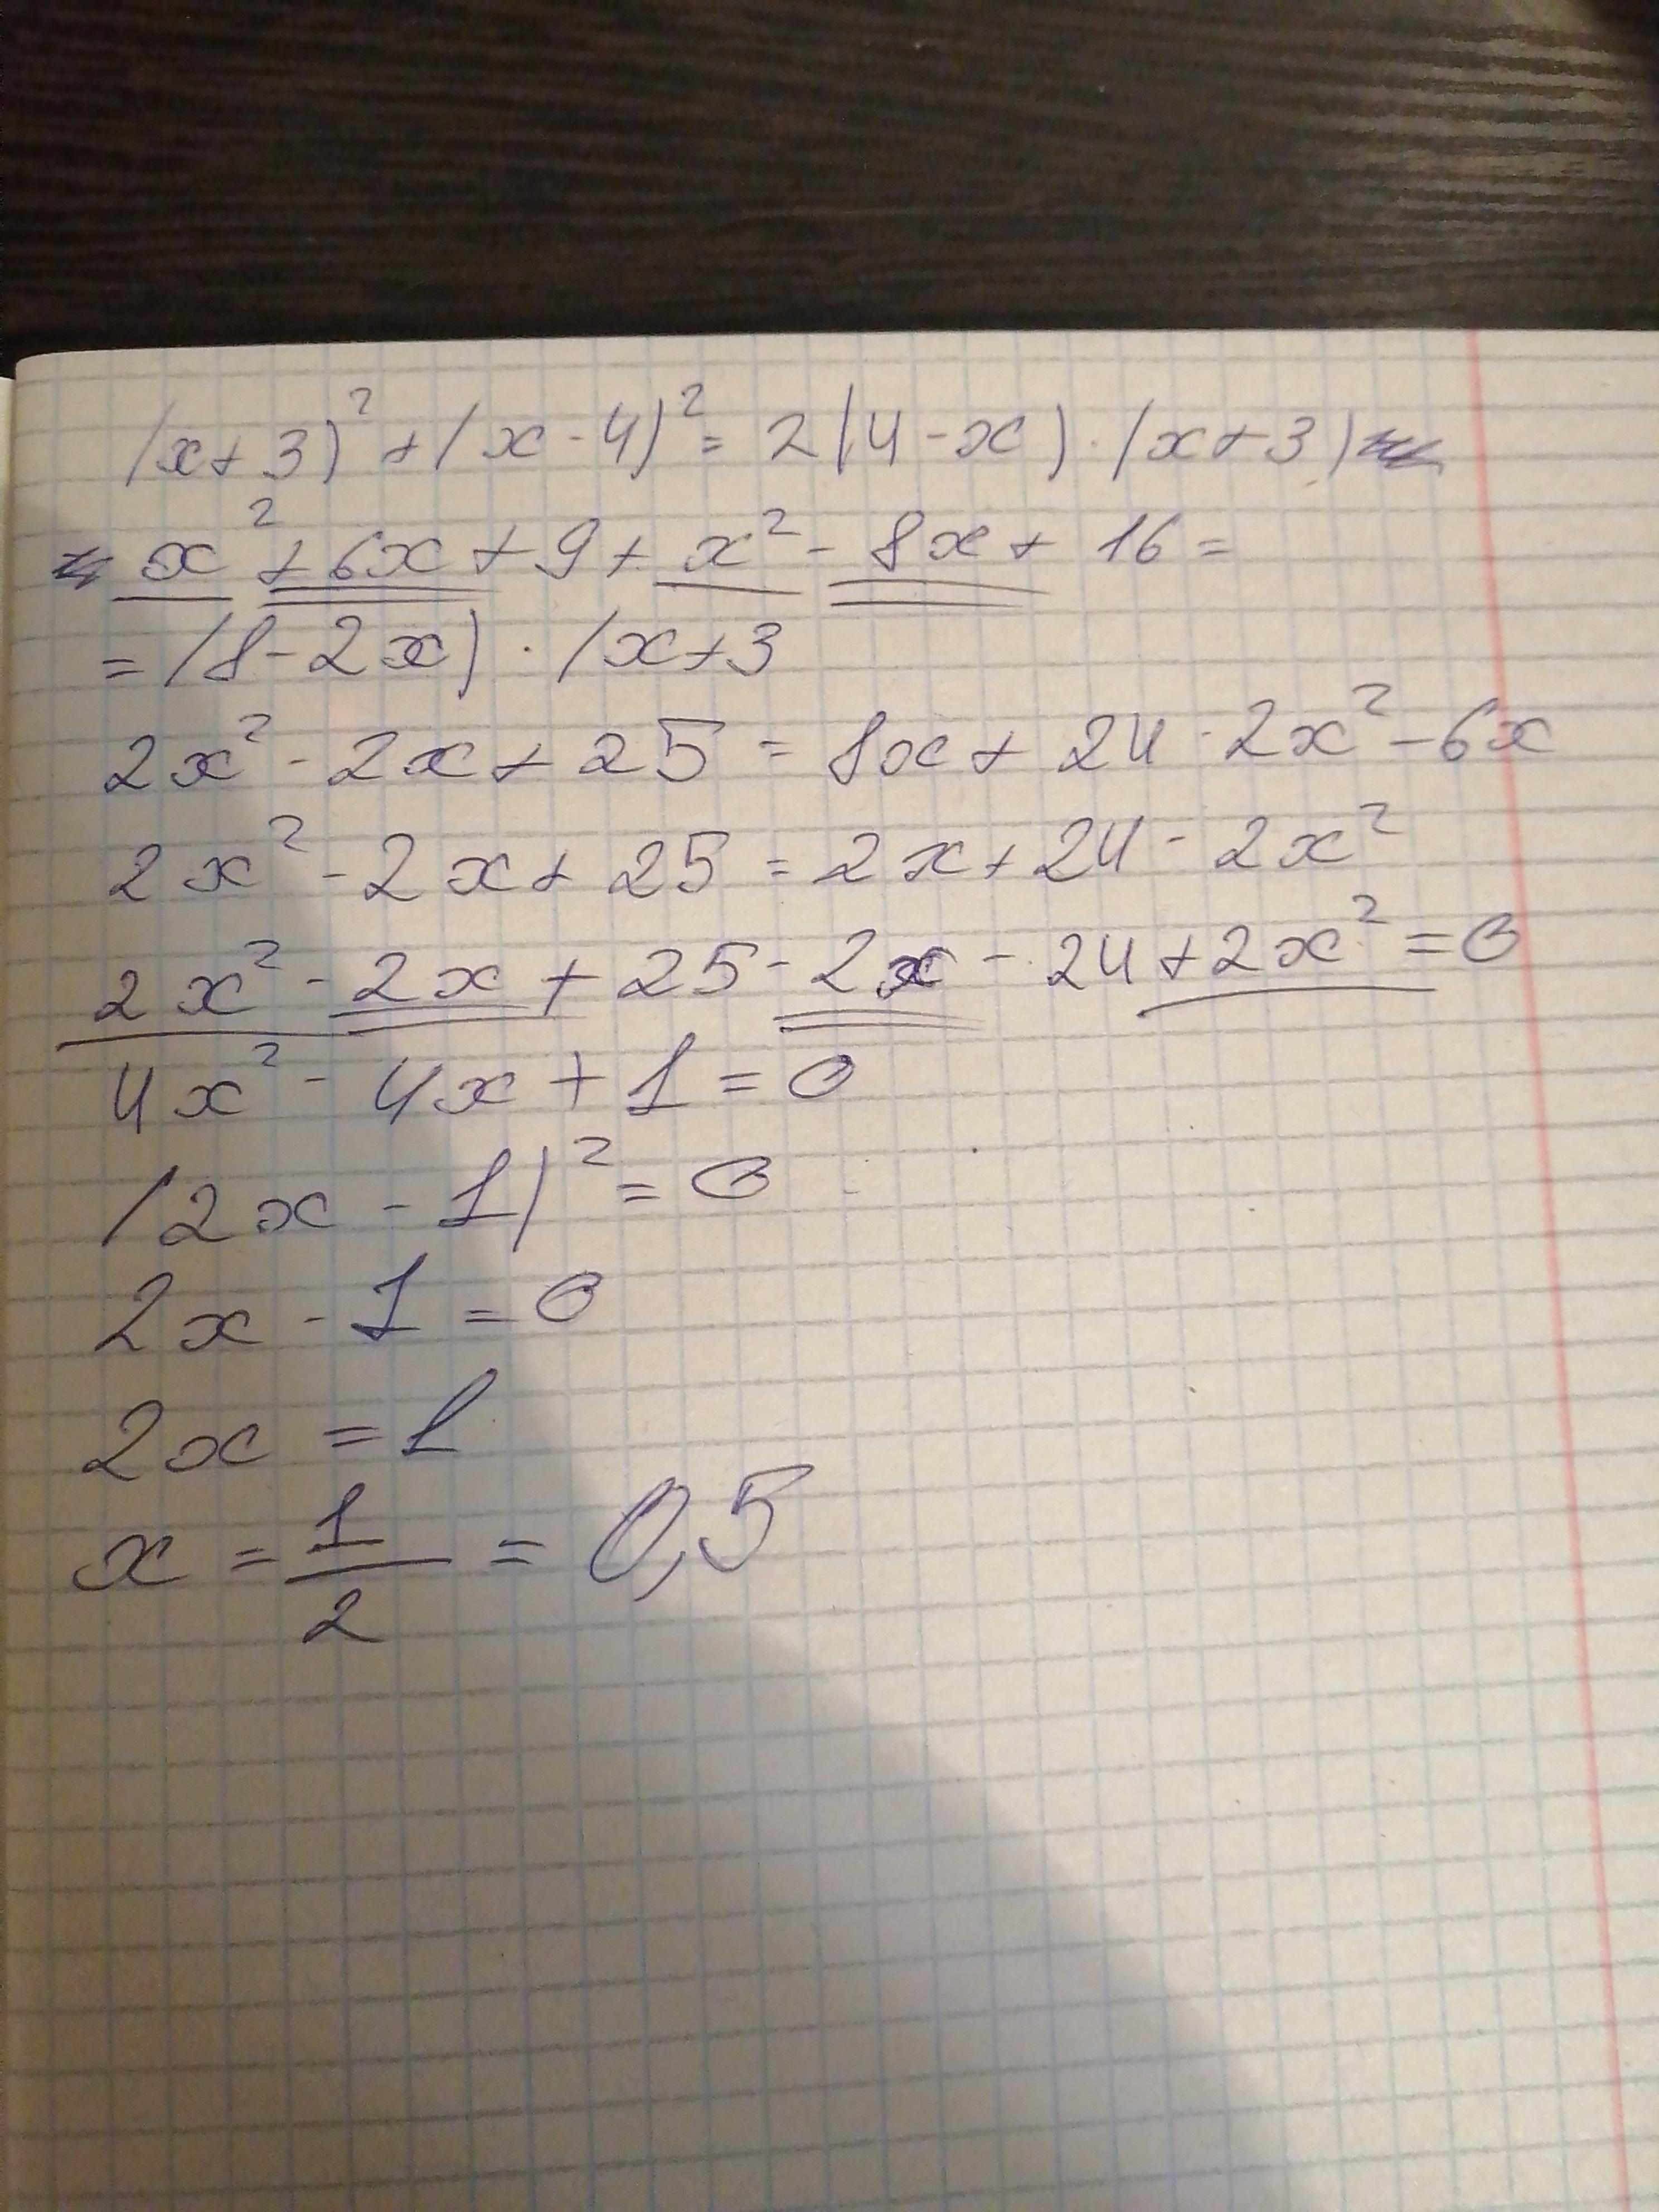 (x+3)² + (x-4)² = 2(4-x)·(x+3)
x² + 6x + 9 + x² - 8x + 16 =
= (8-2x)·(x+3
2x² - 2x + 25 = 8x + 24 - 2x² - 6x
2x² - 2x + 25 = 2x + 24 - 2x²
2x² - 2x + 25 - 2x - 24 + 2x² = 0
4x² - 4x + 1 = 0
(2x - 1)² = 0
2x - 1 = 0
2x = 1
x = 1/2 = 0,5